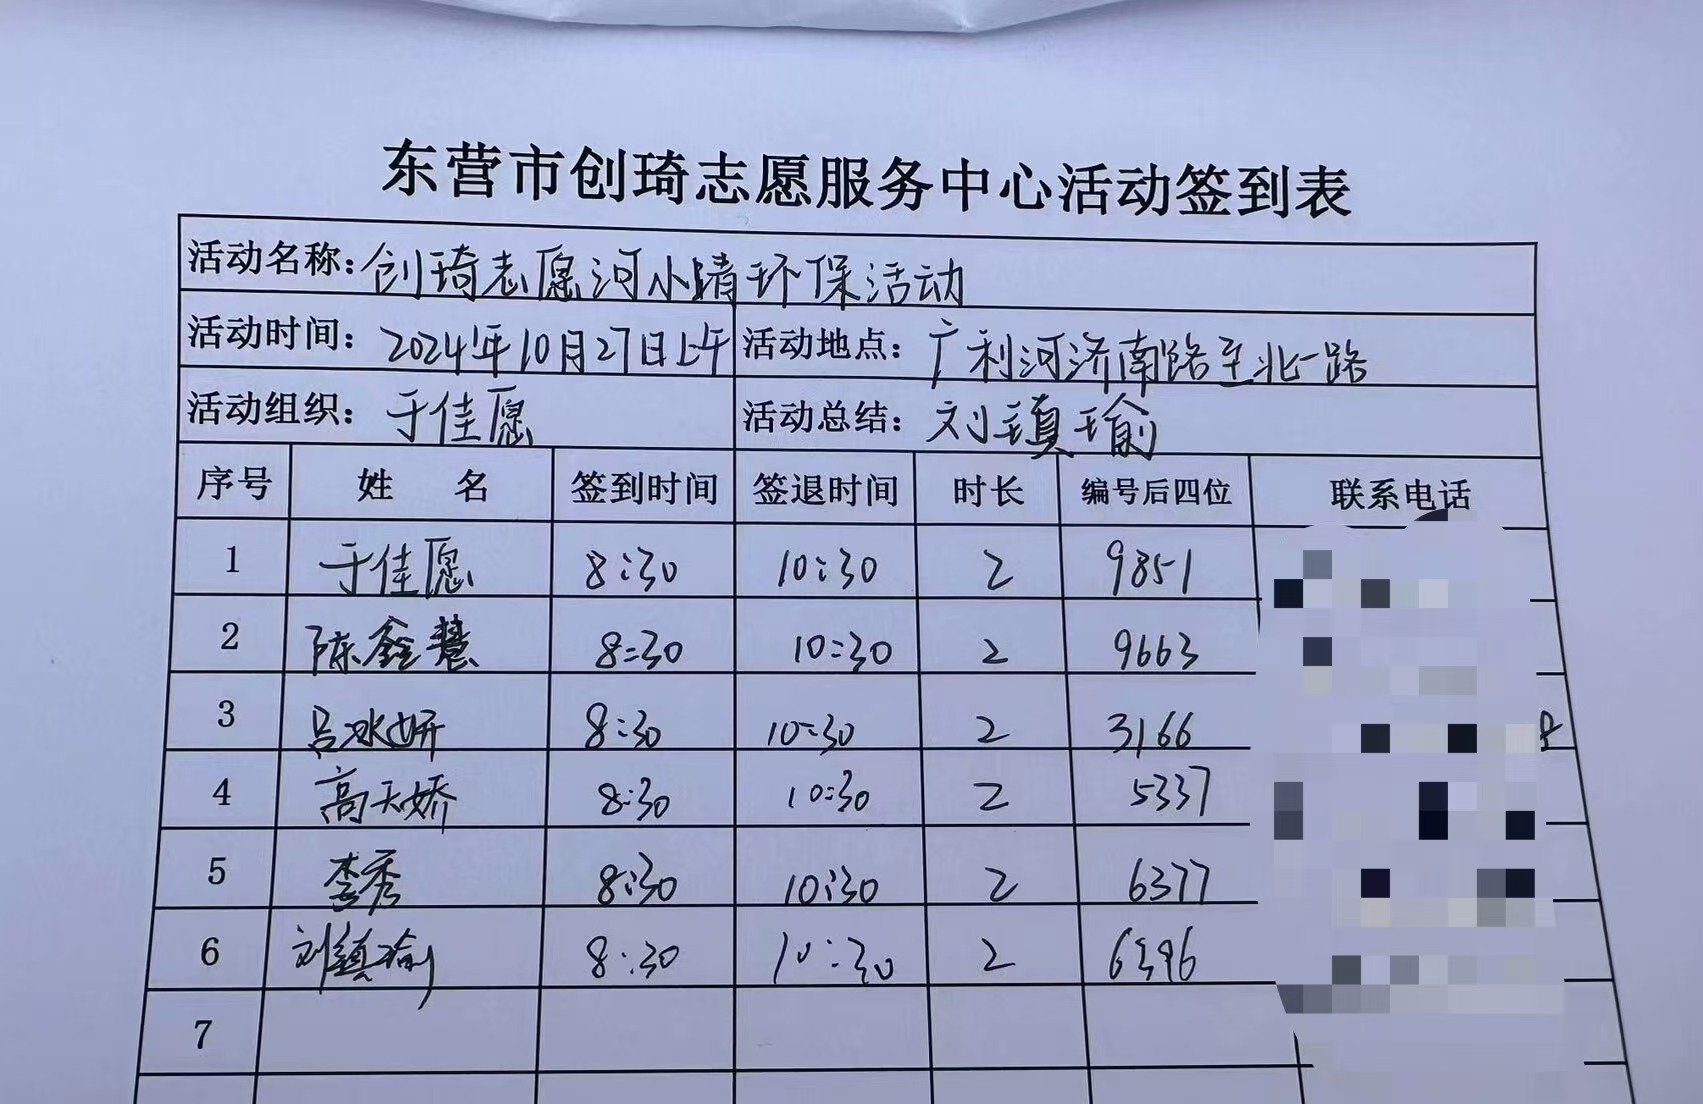 东营市创琦志愿服务中心活动签到表
活动名称：创琦志愿河小青环保活动
活动时间：2024年10月27日上午 活动地点：广利河济南路至北一路
活动组织：于佳愿 活动总结：刘瑱瑜
序号 姓 名 签到时间 签退时间 时长 编号后四位 联系电话
1 于佳愿 8:30 10:30 2 9851
2 陈鑫慧 8:30 10:30 2 9663
3 吕冰妍 8:30 10:30 2 3166
4 高天娇 8:30 10:30 2 5337
5 李秀 8:30 10:30 2 6377
6 刘瑱瑜 8:30 10:30 2 6396
7